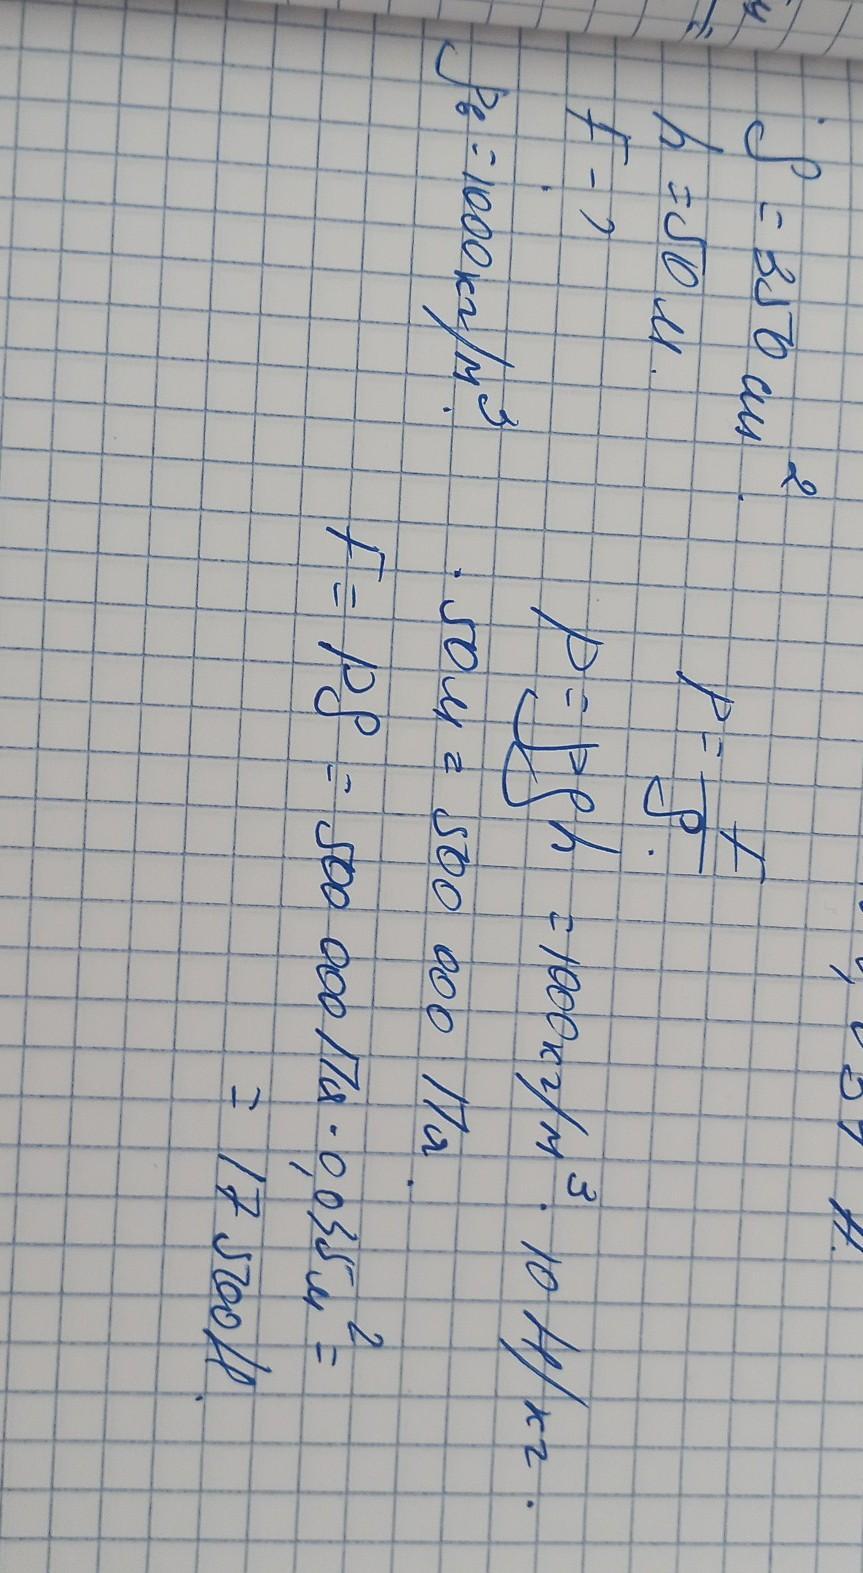 S = 350 см².
h = 50 м.
F - ?
ρв = 1000 кг/м³.
p = F/S.
p = ρgh = 1000 кг/м³ · 10 Н/кг ·
· 50 м = 500 000 Па.
F = pS = 500 000 Па · 0,035 м² =
= 17 500 Н.